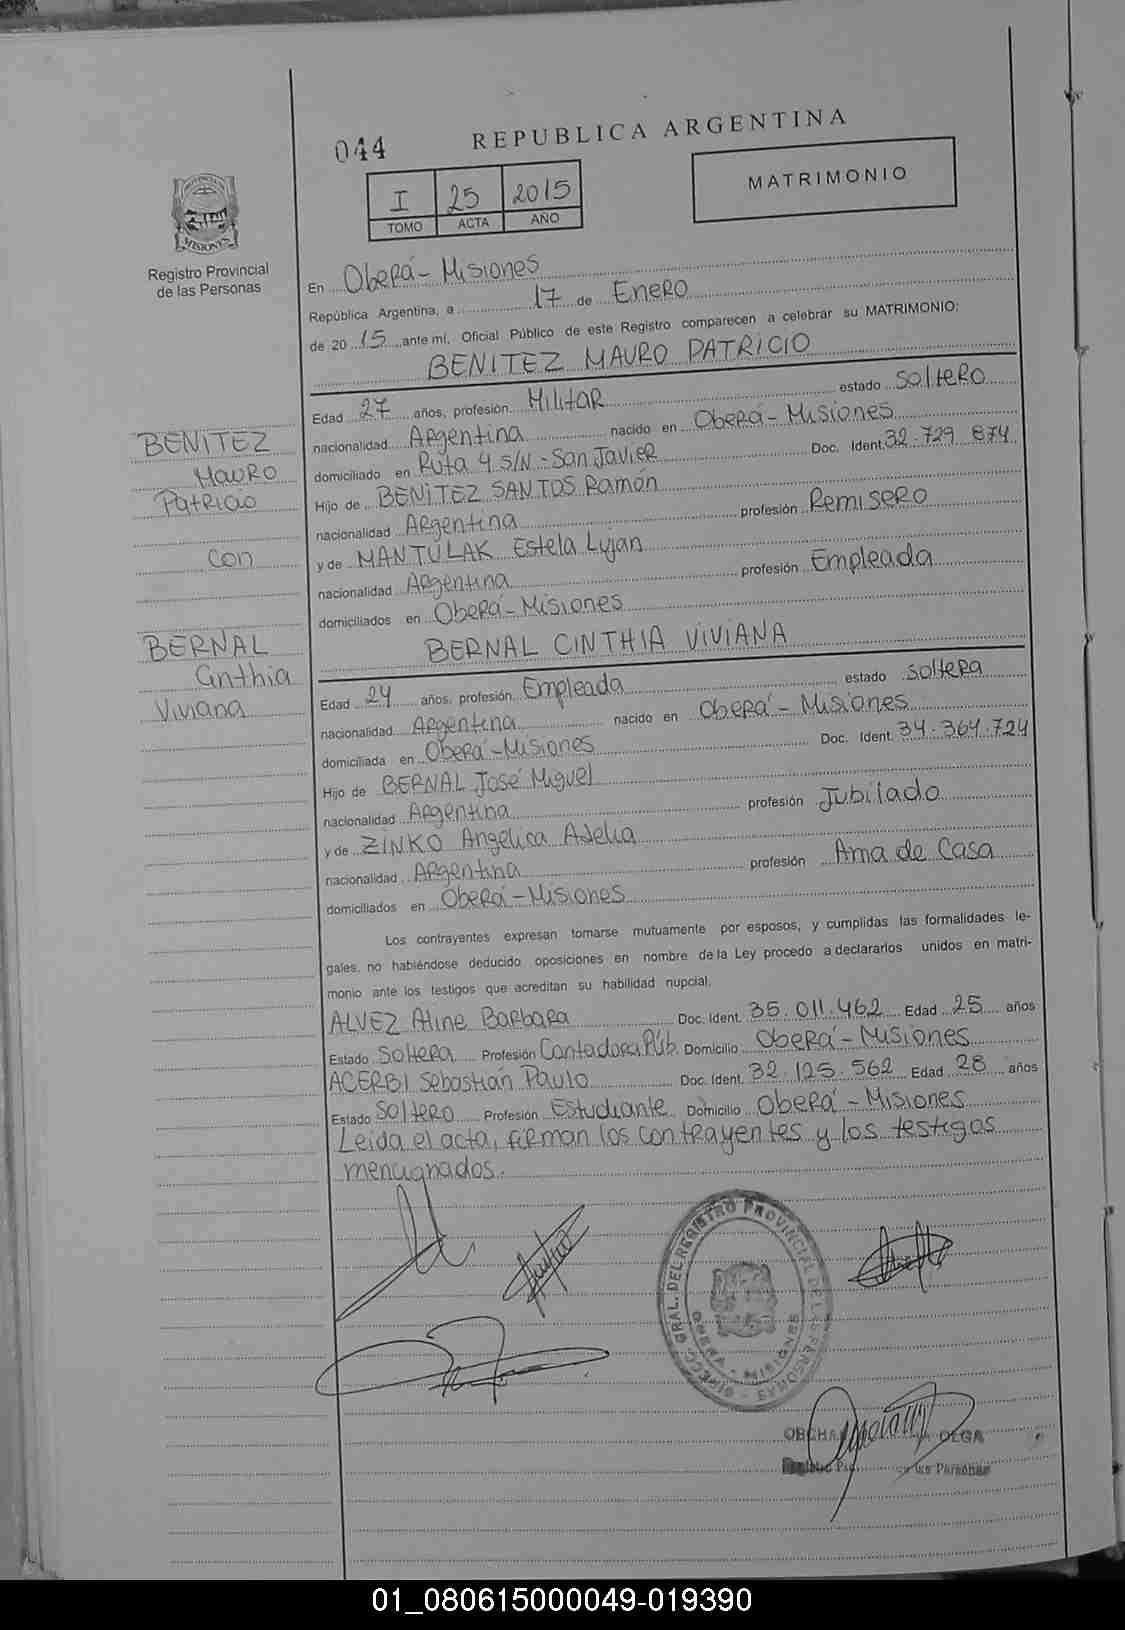 044
REPUBLICA ARGENTINA
I 25 2015
TOMO ACTA AÑO
MATRIMONIO
PROVINCIA DE
MISIONES
Registro Provincial
de las Personas
En Oberá - Misiones
República Argentina, a 17 de Enero
de 20 15 ante mí, Oficial Público de este Registro comparecen a celebrar su MATRIMONIO:
BENITEZ MAURO PATRICIO
Edad 27 años, profesión Militar estado soltero
nacionalidad Argentina nacido en Oberá - Misiones
domiciliado en Ruta 4 S/N - San Javier Doc. Ident. 32.729.874
Hijo de BENITEZ SANTOS Ramón
nacionalidad Argentina profesión Remisero
y de MANTULAK Estela Lujan
nacionalidad Argentina profesión Empleada
domiciliados en Oberá - Misiones
BENITEZ
Mauro
Patricio
con
BERNAL
Cinthia
Viviana
BERNAL CINTHIA VIVIANA
Edad 24 años, profesión Empleada estado soltera
nacionalidad Argentina nacido en Oberá - Misiones
domiciliada en Oberá - Misiones Doc. Ident. 34.364.724
Hijo de BERNAL José Miguel
nacionalidad Argentina profesión Jubilado
y de ZINKO Angélica Adelia
nacionalidad Argentina profesión Ama de Casa
domiciliados en Oberá - Misiones
Los contrayentes expresan tomarse mutuamente por esposos, y cumplidas las formalidades le-
gales, no habiéndose deducido oposiciones en nombre de la Ley procedo a declararlos unidos en matri-
monio ante los testigos que acreditan su habilidad nupcial.
ALVEZ Aline Barbara Doc. Ident. 35.011.462 Edad 25 años
Estado Soltera Profesión Contadora Púb. Domicilio Oberá - Misiones
ACERBI Sebastián Paulo Doc. Ident. 32.125.562 Edad 28 años
Estado Soltero Profesión Estudiante Domicilio Oberá - Misiones
Leída el acta, firman los contrayentes y los testigos
mencionados.
DIRECC. GRAL. DEL REGISTRO PROVINCIAL DE LAS PERSONAS
OBERA - MISIONES
OLGA
las Personas
01_080615000049-019390